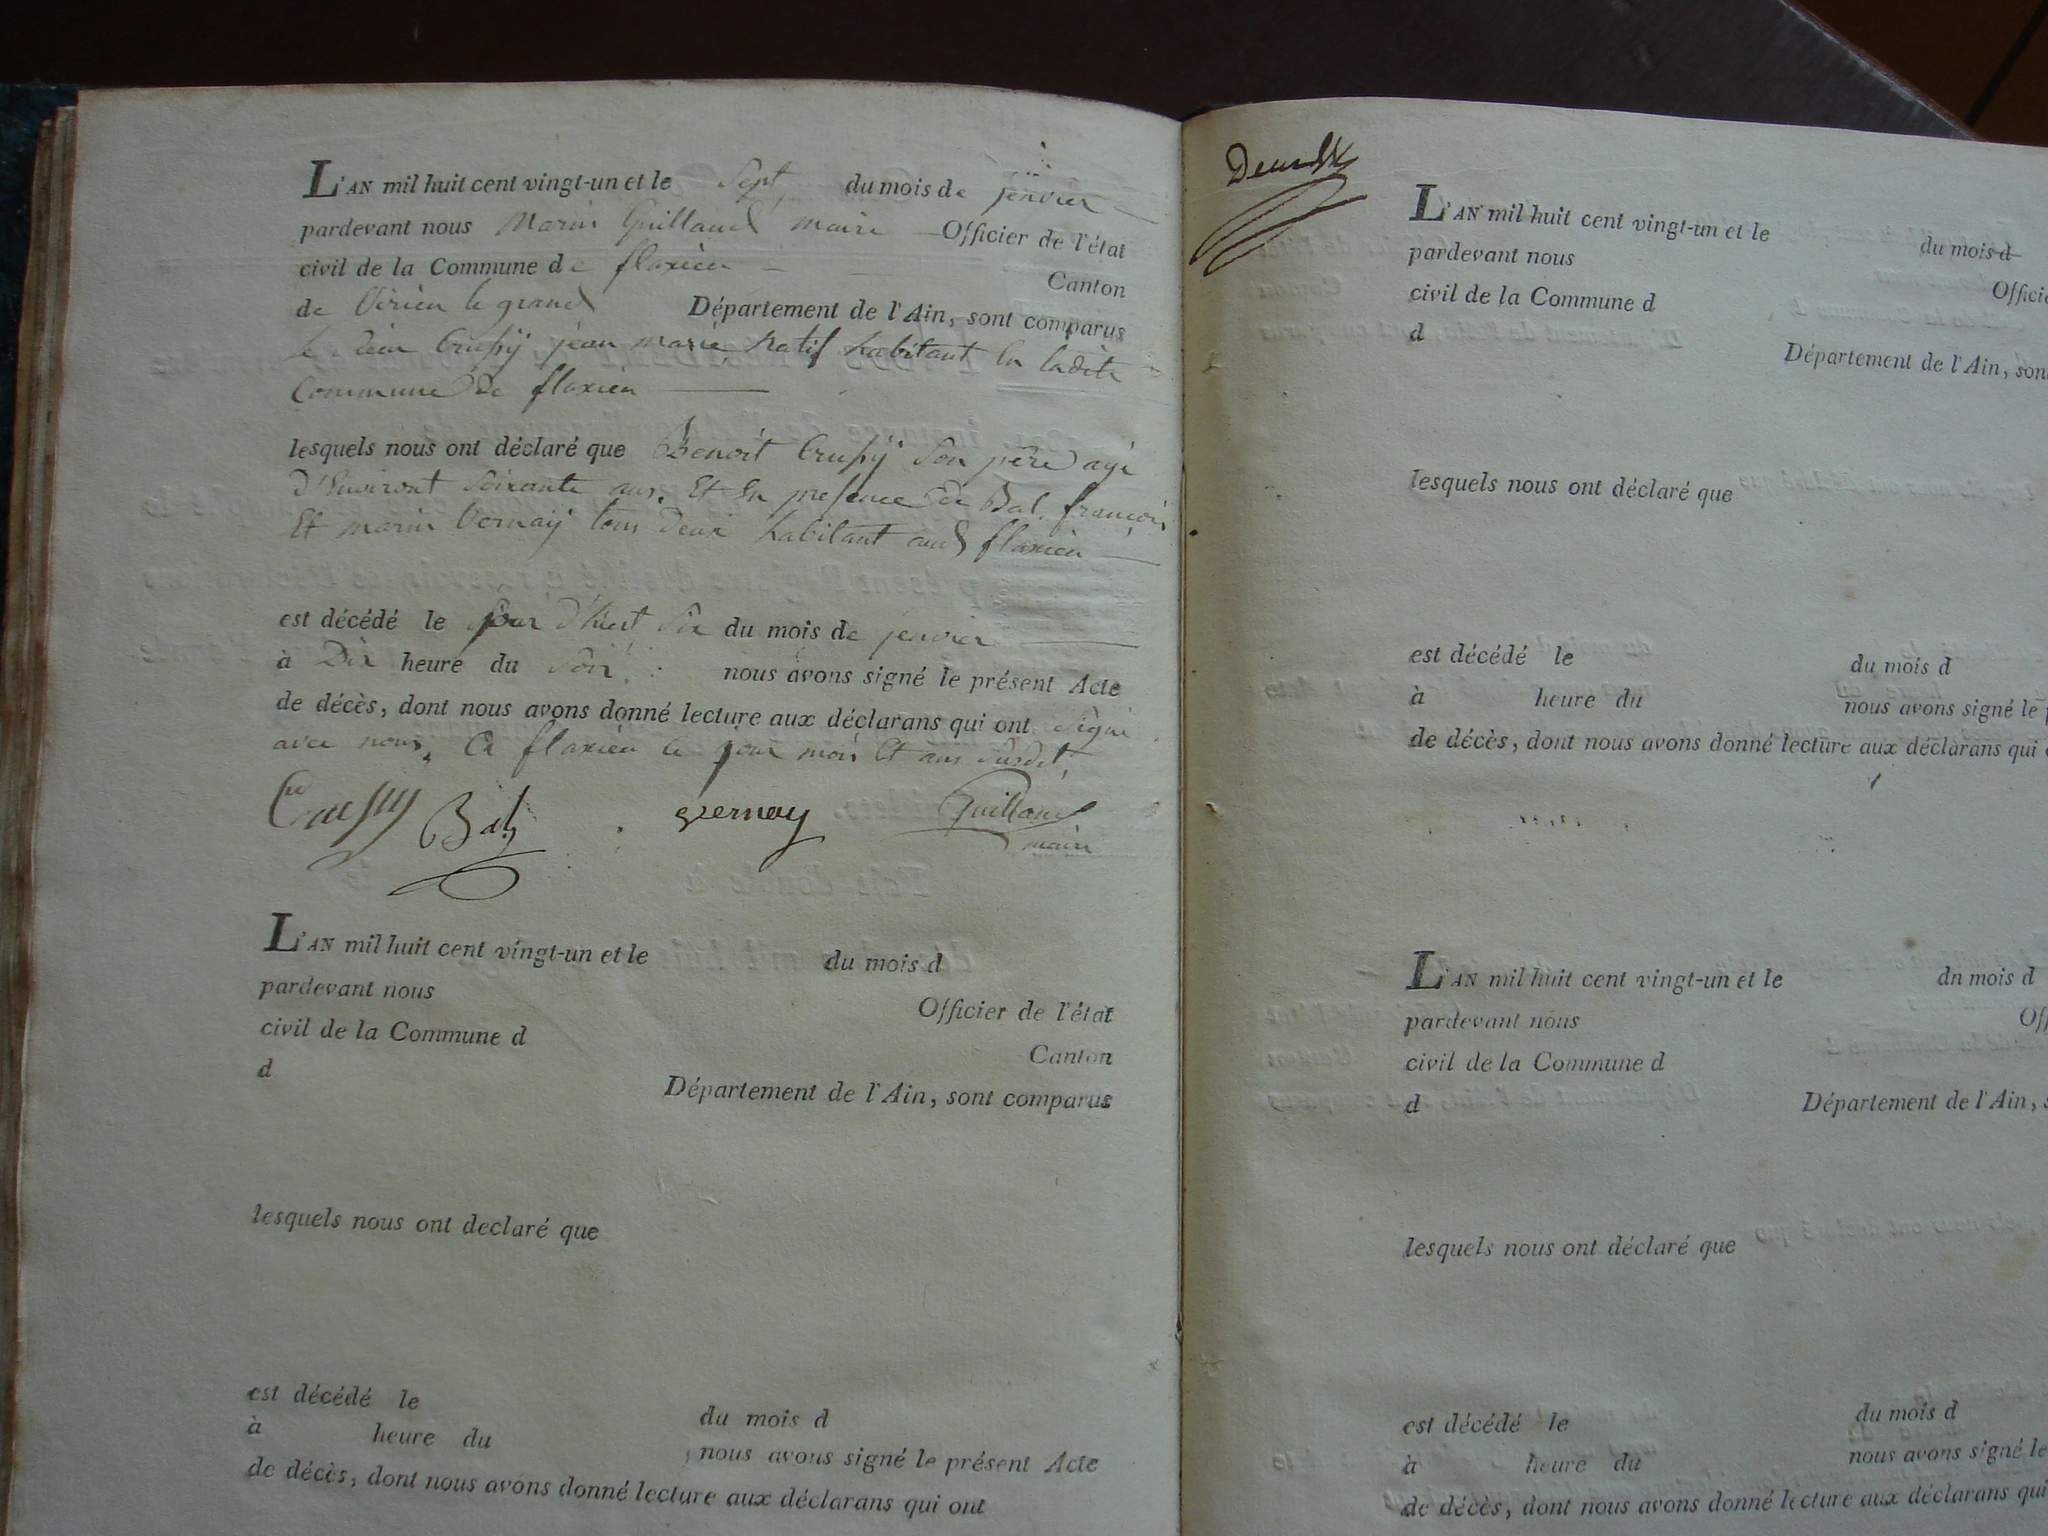 L'AN mil huit cent vingt-un et le Sept du mois de jenvier
pardevant nous Marin Guillaud maire Officier de l'état
civil de la Commune de flaxieu Canton
de Virieu le grand Département de l'Ain, sont comparus
le sieur Crussy jean marie natif habitant en ladite
Commune de flaxieu
lesquels nous ont déclaré que Benoit Crussy son père agé
d'Environt Soixante ans. Et En presence de Bal. françois
Et marin Vernay tous deux habitant aud flaxieu
est décédé le jour d'hiert Six du mois de jenvier
à Dix heure du Soir. nous avons signé le présent Acte
de décès, dont nous avons donné lecture aux déclarans qui ont Signé
avec nous, a flaxieu le jour mois Et ans Susdit,
Crussy Bal vernay Guillaud
maire
L'AN mil huit cent vingt-un et le du mois d
pardevant nous Officier de l'état
civil de la Commune d Canton
d Département de l'Ain, sont comparus
lesquels nous ont declaré que
est décédé le du mois d
à heure du nous avons signé le présent Acte
de décès, dont nous avons donné lecture aux déclarans qui ont
L'AN mil huit cent vingt-un et le du mois d
pardevant nous Officie
civil de la Commune d
d Département de l'Ain, son
lesquels nous ont déclaré que
est décédé le du mois d
à heure du nous avons signé le p
de décès, dont nous avons donné lecture aux déclarans qui
L'AN mil huit cent vingt-un et le dn mois d
pardevant nous Off
civil de la Commune d
d Département de l'Ain, s
lesquels nous ont déclaré que
est décédé le du mois d
à heure du nous avons signé le
de décès, dont nous avons donné lecture aux déclarans qui